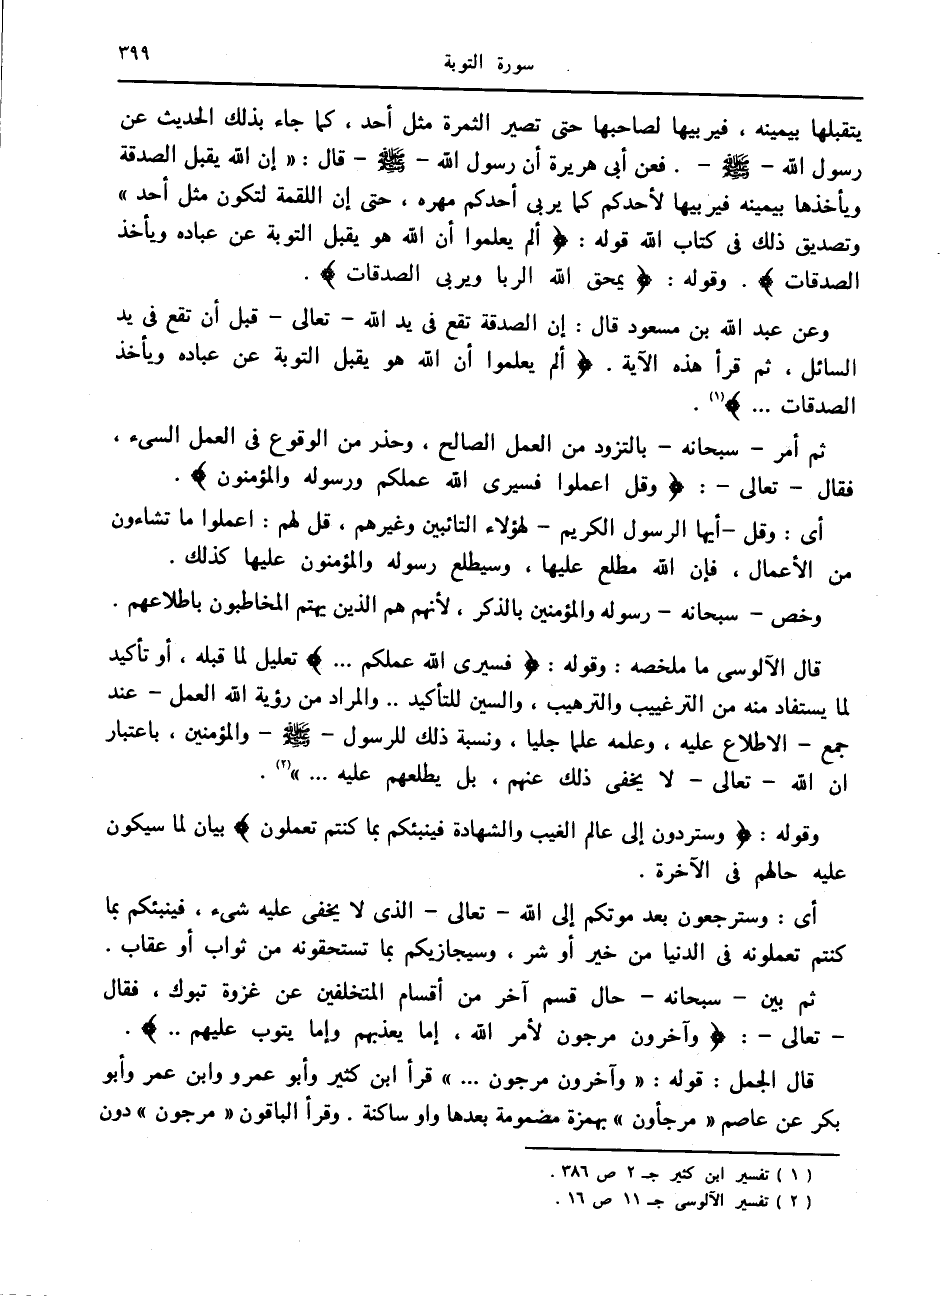 سورة التوبة ٣٩٩
يتقبلها بيمينه ، فيربيها لصاحبها حتى تصير الثمرة مثل أحد ، كما جاء بذلك الحديث عن
رسول الله – ﷺ – . فعن أبى هريرة أن رسول الله – ﷺ – قال : « إن الله يقبل الصدقة
ويأخذها بيمينه فيربيها لأحدكم كما يربى أحدكم مهره ، حتى إن اللقمة لتكون مثل أحد »
وتصديق ذلك فى كتاب الله قوله : ﴿ ألم يعلموا أن الله هو يقبل التوبة عن عباده ويأخذ
الصدقات ﴾ . وقوله : ﴿ يمحق الله الربا ويربى الصدقات ﴾ .
وعن عبد الله بن مسعود قال : إن الصدقة تقع فى يد الله – تعالى – قبل أن تقع فى يد
السائل ، ثم قرأ هذه الآية . ﴿ ألم يعلموا أن الله هو يقبل التوبة عن عباده ويأخذ
الصدقات ... ﴾(١) .
ثم أمر – سبحانه – بالتزود من العمل الصالح ، وحذر من الوقوع فى العمل السىء ،
فقال – تعالى – : ﴿ وقل اعملوا فسيرى الله عملكم ورسوله والمؤمنون ﴾ .
أى : وقل –أيها الرسول الكريم – لهؤلاء التائبين وغيرهم ، قل لهم : اعملوا ما تشاءون
من الأعمال ، فإن الله مطلع عليها ، وسيطلع رسوله والمؤمنون عليها كذلك .
وخص – سبحانه – رسوله والمؤمنين بالذكر ، لأنهم هم الذين يهتم المخاطبون باطلاعهم .
قال الآلوسى ما ملخصه : وقوله : ﴿ فسيرى الله عملكم ... ﴾ تعليل لما قبله ، أو تأكيد
لما يستفاد منه من الترغييب والترهيب ، والسين للتأكيد .. والمراد من رؤية الله العمل – عند
جمع – الاطلاع عليه ، وعلمه علما جليا ، ونسبة ذلك للرسول – ﷺ – والمؤمنين ، باعتبار
ان الله – تعالى – لا يخفى ذلك عنهم ، بل يطلعهم عليه ... »(٢) .
وقوله : ﴿ وستردون إلى عالم الغيب والشهادة فينبئكم بما كنتم تعملون ﴾ بيان لما سيكون
عليه حالهم فى الآخرة .
أى : وسترجعون بعد موتكم إلى الله – تعالى – الذى لا يخفى عليه شىء ، فينبئكم بما
كنتم تعملونه فى الدنيا من خير أو شر ، وسيجازيكم بما تستحقونه من ثواب أو عقاب .
ثم بين – سبحانه – حال قسم آخر من أقسام المتخلفين عن غزوة تبوك ، فقال
– تعالى – : ﴿ وآخرون مرجون لأمر الله ، إما يعذبهم وإما يتوب عليهم .. ﴾ .
قال الجمل : قوله : « وآخرون مرجون ... » قرأ ابن كثير وأبو عمرو وابن عمر وأبو
بكر عن عاصم « مرجأون » بهمزة مضمومة بعدها واو ساكنة . وقرأ الباقون « مرجون » دون
( ١ ) تفسير ابن كثير جـ ٢ ص ٣٨٦ .
( ٢ ) تفسير الآلوسى جـ ١١ ص ١٦ .